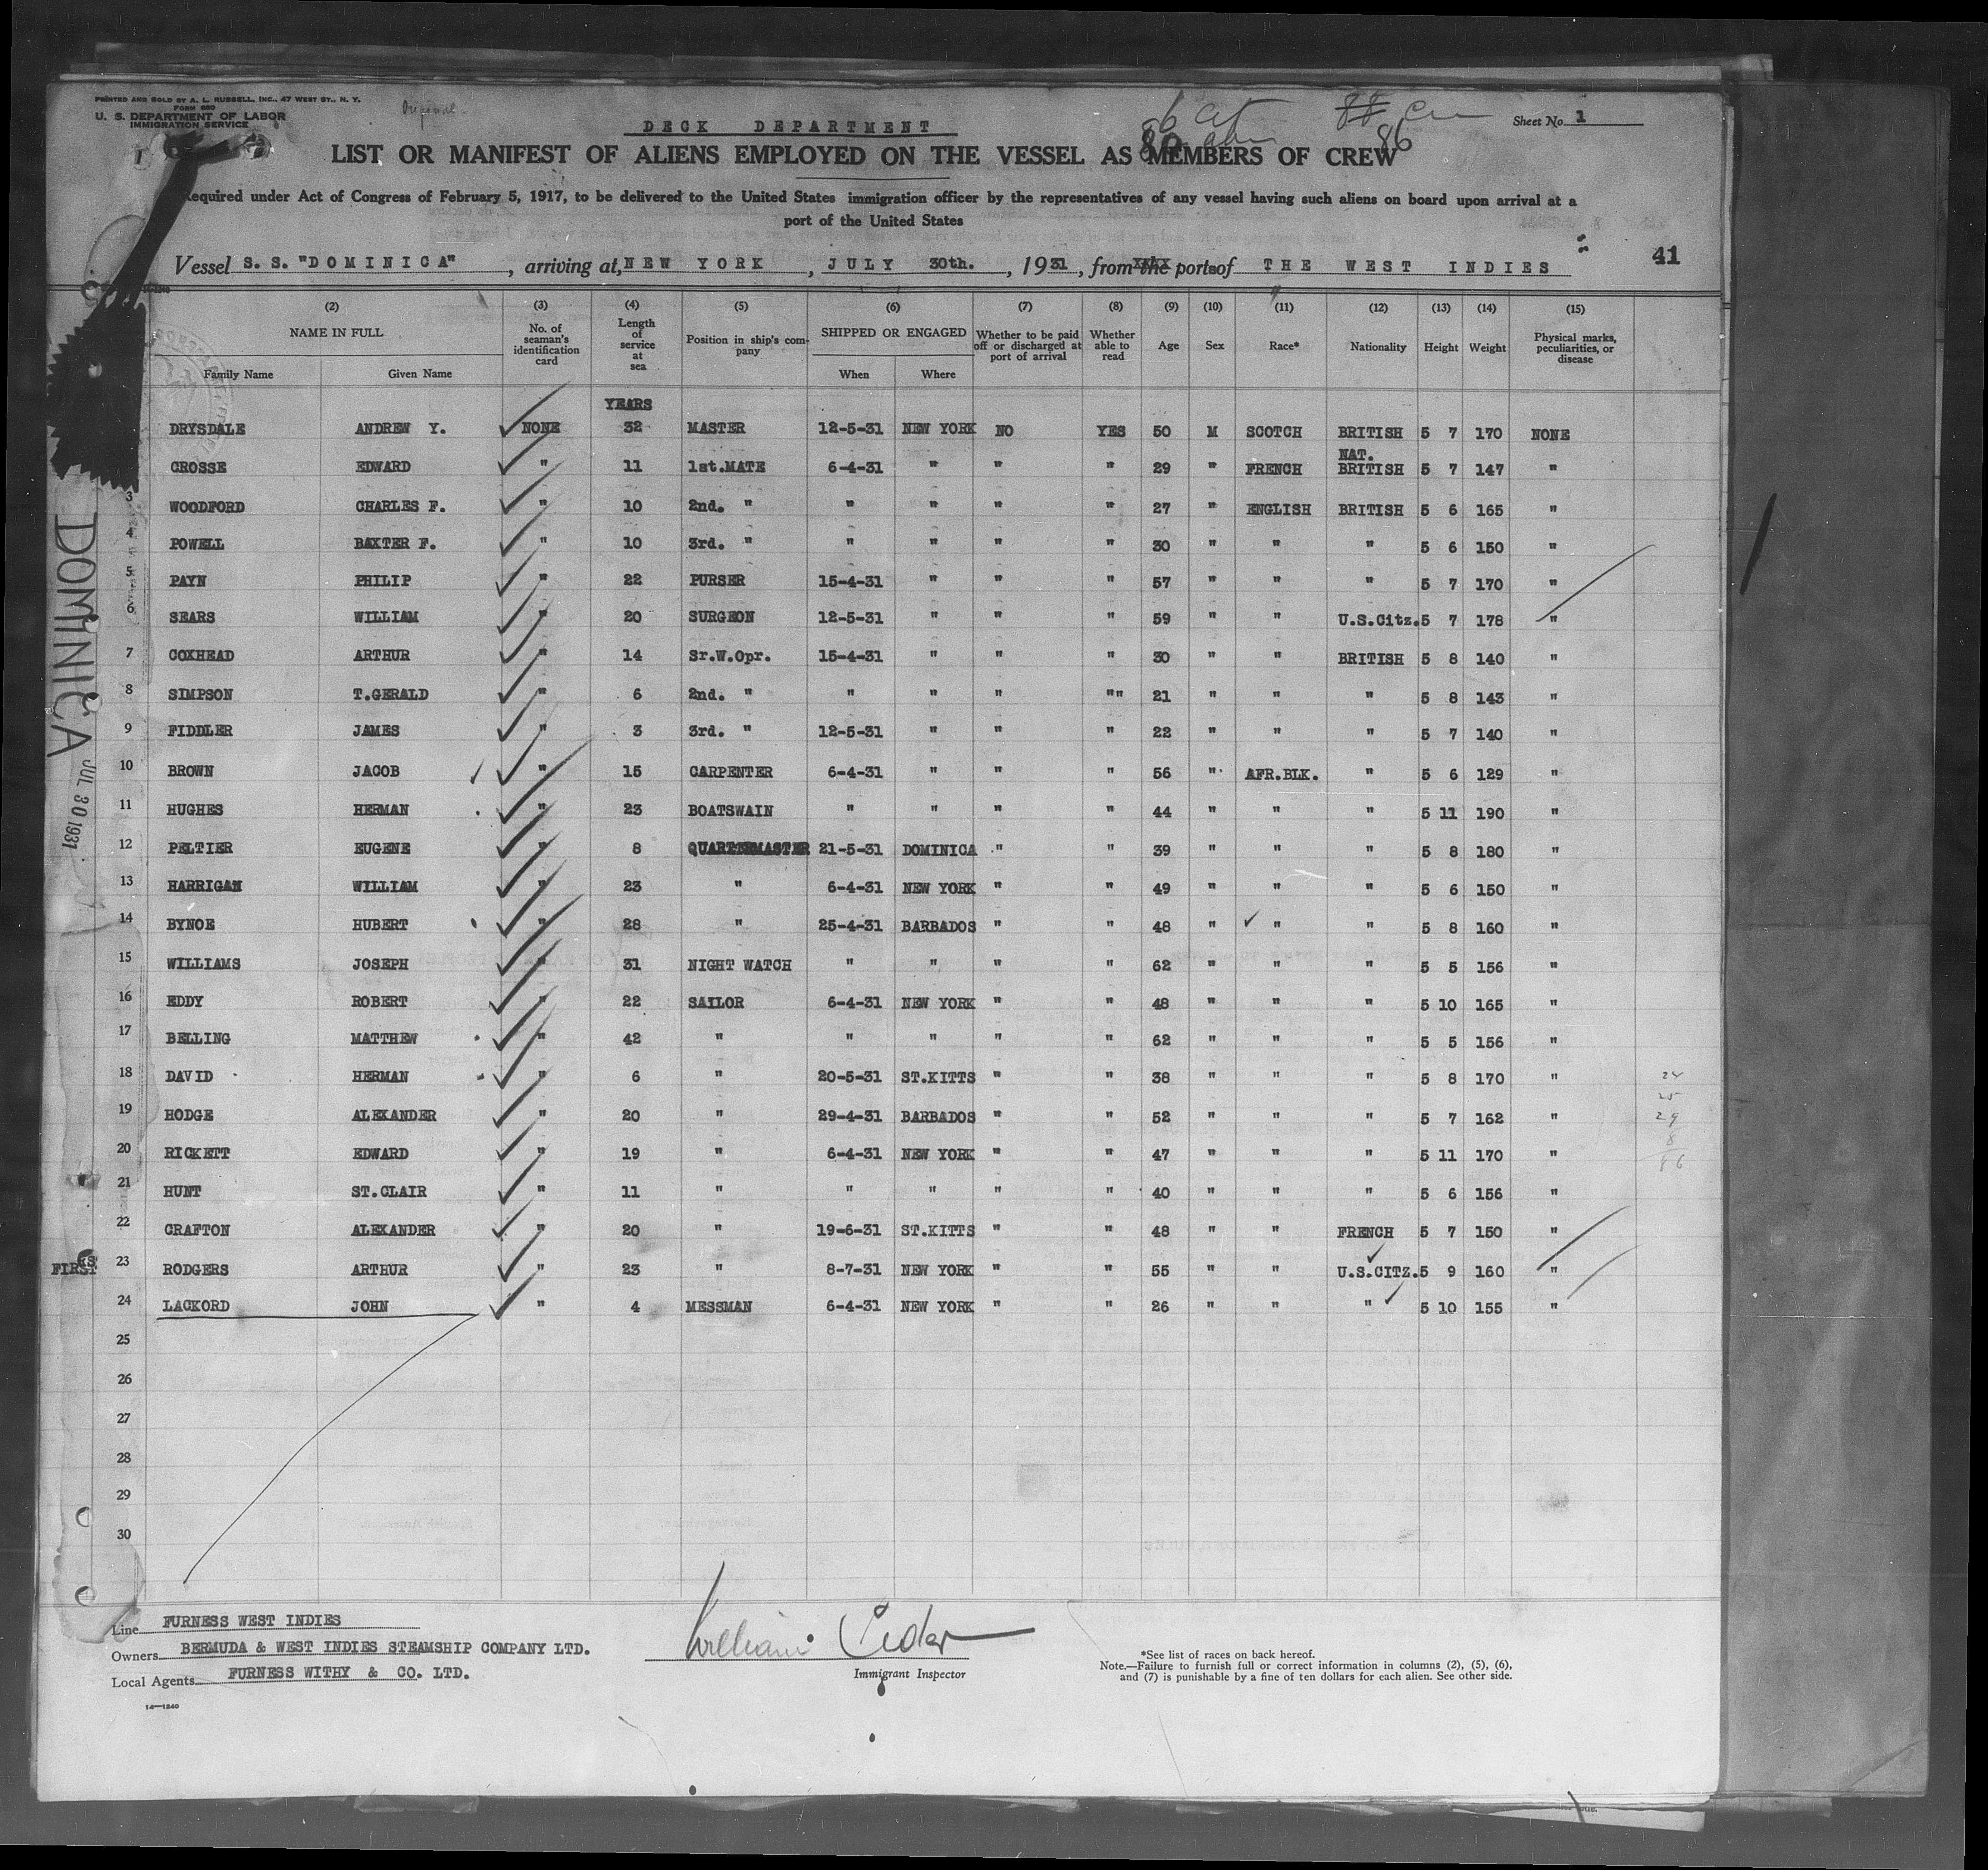 PRINTED AND SOLD BY A. L. RUSSELL, INC., 47 WEST ST., N. Y.
FORM 680
U. S. DEPARTMENT OF LABOR
IMMIGRATION SERVICE
Original
DECK DEPARTMENT
Sheet No. 1
LIST OR MANIFEST OF ALIENS EMPLOYED ON THE VESSEL AS MEMBERS OF CREW
86
Required under Act of Congress of February 5, 1917, to be delivered to the United States immigration officer by the representatives of any vessel having such aliens on board upon arrival at a
port of the United States
Vessel S. S. "DOMINICA", arriving at, NEW YORK, JULY 30th., 1931, from the ports of THE WEST INDIES 41
(2) (3) (4) (5) (6) (7) (8) (9) (10) (11) (12) (13) (14) (15)
NAME IN FULL No. of seaman's identification card Length of service at sea Position in ship's company SHIPPED OR ENGAGED Whether to be paid off or discharged at port of arrival Whether able to read Age Sex Race* Nationality Height Weight Physical marks, peculiarities, or disease
Family Name Given Name When Where
YEARS
DRYSDALE ANDREW Y. NONE 32 MASTER 12-5-31 NEW YORK NO YES 50 M SCOTCH BRITISH 5 7 170 NONE
NAT.
CROSSE EDWARD " 11 1st.MATE 6-4-31 " " " 29 " FRENCH BRITISH 5 7 147 "
3 WOODFORD CHARLES F. " 10 2nd. " " " " " 27 " ENGLISH BRITISH 5 6 165 "
4 POWELL BAXTER F. " 10 3rd. " " " " " 30 " " " 5 6 150 "
5 PAYN PHILIP " 22 PURSER 15-4-31 " " " 57 " " " 5 7 170 "
6 SEARS WILLIAM " 20 SURGEON 12-5-31 " " " 59 " " U.S.Citz. 5 7 178 "
7 COXHEAD ARTHUR " 14 Sr.W.Opr. 15-4-31 " " " 30 " " BRITISH 5 8 140 "
8 SIMPSON T.GERALD " 6 2nd. " " " " "" 21 " " " 5 8 143 "
9 FIDDLER JAMES " 3 3rd. " 12-5-31 " " " 22 " " " 5 7 140 "
10 BROWN JACOB " 15 CARPENTER 6-4-31 " " " 56 " AFR.BLK. " 5 6 129 "
11 HUGHES HERMAN " 23 BOATSWAIN " " " " 44 " " " 5 11 190 "
12 PELTIER EUGENE " 8 QUARTEMASTER 21-5-31 DOMINICA " " 39 " " " 5 8 180 "
13 HARRIGAN WILLIAM " 23 " 6-4-31 NEW YORK " " 49 " " " 5 6 150 "
14 BYNOE HUBERT " 28 " 25-4-31 BARBADOS " " 48 " " " 5 8 160 "
15 WILLIAMS JOSEPH " 31 NIGHT WATCH " " " " 62 " " " 5 5 156 "
16 EDDY ROBERT " 22 SAILOR 6-4-31 NEW YORK " " 48 " " " 5 10 165 "
17 BELLING MATTHEW " 42 " " " " " 62 " " " 5 5 156 "
18 DAVID HERMAN " 6 " 20-5-31 ST.KITTS " " 38 " " " 5 8 170 "
19 HODGE ALEXANDER " 20 " 29-4-31 BARBADOS " " 52 " " " 5 7 162 "
20 RICKETT EDWARD " 19 " 6-4-31 NEW YORK " " 47 " " " 5 11 170 "
21 HUNT ST.CLAIR " 11 " " " " " 40 " " " 5 6 156 "
22 CRAFTON ALEXANDER " 20 " 19-6-31 ST.KITTS " " 48 " " FRENCH 5 7 150 "
FIRST 23 RODGERS ARTHUR " 23 " 8-7-31 NEW YORK " " 55 " " U.S.CITZ. 5 9 160 "
24 LACKORD JOHN " 4 MESSMAN 6-4-31 NEW YORK " " 26 " " " 5 10 155 "
25
26
27
28
29
30
DOMINICA
JUL 30 1931
24
25
29
8
86
Line FURNESS WEST INDIES
Owners BERMUDA & WEST INDIES STEAMSHIP COMPANY LTD.
Local Agents FURNESS WITHY & CO. LTD.
14—1240
William
Immigrant Inspector
*See list of races on back hereof.
Note.—Failure to furnish full or correct information in columns (2), (5), (6),
and (7) is punishable by a fine of ten dollars for each alien. See other side.